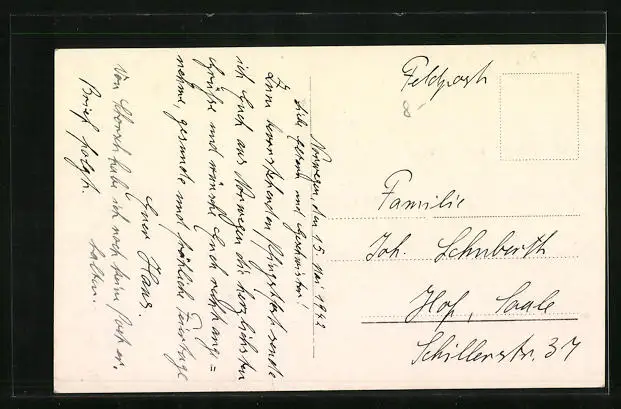 Feldpost
Familie
Joh. Schuberth
Hof, Saale
Schillerstr. 37
Norwegen, den 15. Mai 1942
Liebe Eltern und Geschwister!
Zum bevorstehenden Pfingstfest sende
ich Euch aus Norwegen die herzlichsten
Grüße und wünsche Euch recht ange=
nehme, gesunde und fröhliche Feiertage
Euer Hans.
Von Schorsch habe ich noch keine Post er.
halten.
Brief folgt.